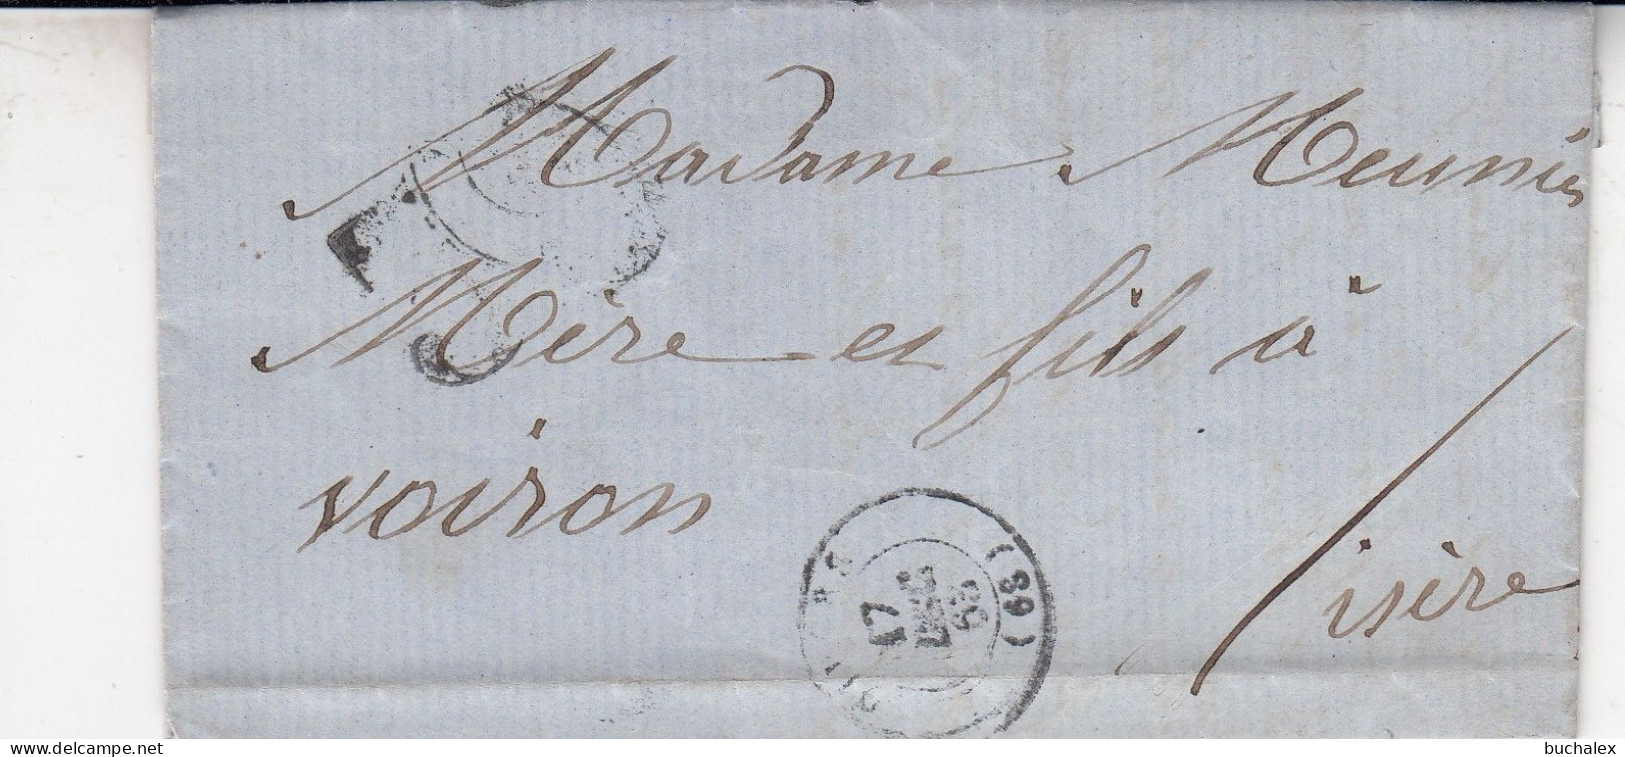 Madame Meunier
Mère et fils à
voiron
isère
(89)
17
59
www.delcampe.net
buchalex